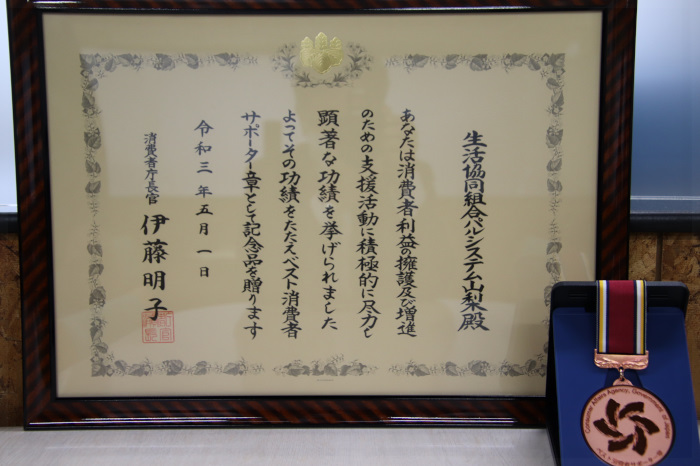 生活協同組合パルシステム山梨殿
あなたは消費者利益の擁護及び増進
のための支援活動に積極的に尽力し
顕著な功績を挙げられました
よってその功績をたたえベスト消費者
サポーター章として記念品を贈ります
令和三年五月一日
消費者庁長官 伊藤明子
Consumer Affairs Agency, Government of Japan
ベスト消費者サポーター章